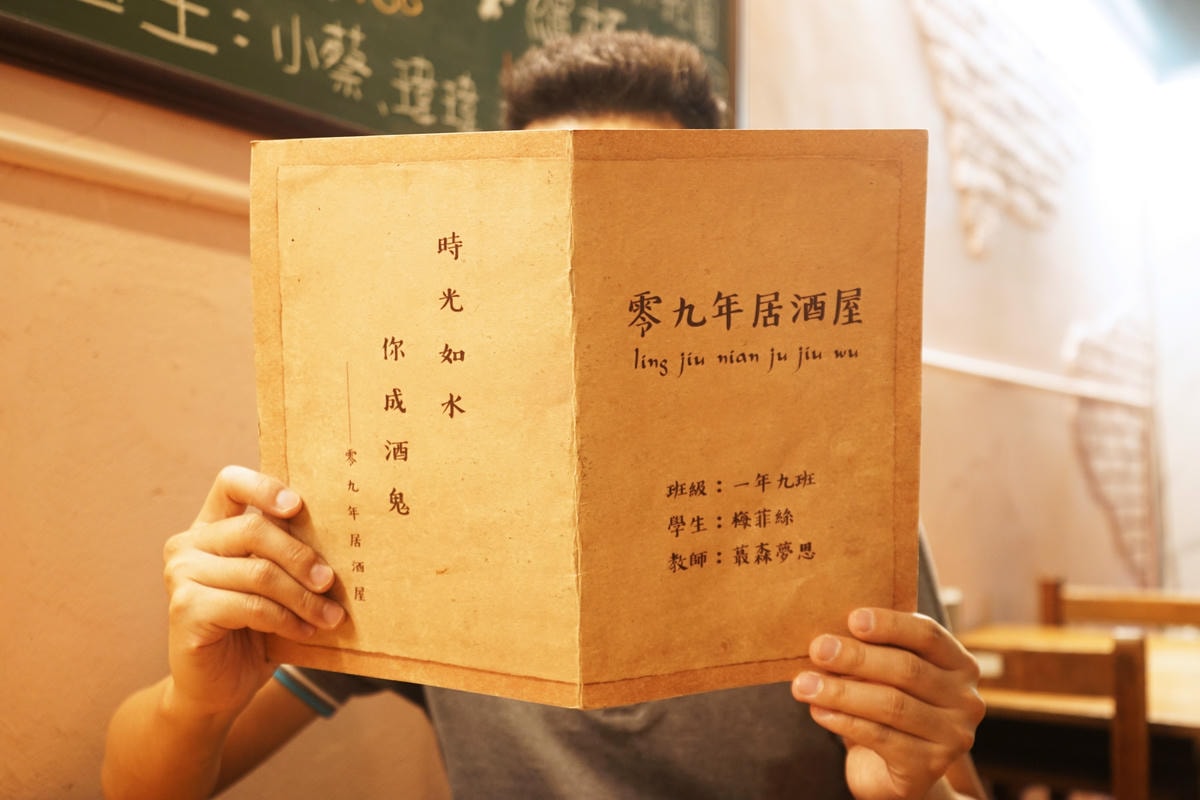 小蔡、瑋瑋
零九年居酒屋
ling jiu nian ju jiu wu
班級：一年九班
學生：梅菲絲
教師：森夢思
時光如水
你成酒鬼
零九年居酒屋